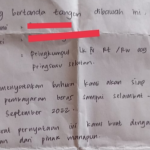 bertanda tangan dibawah ini
Pringkumpul
Rt/Rw
Pringsewu Selatan.
menyatakan bahwa kami akan siap
pembayaran beras sampai selambat -
September 2022
pernyataan ini kami buat dengan
dan pihak manapun.